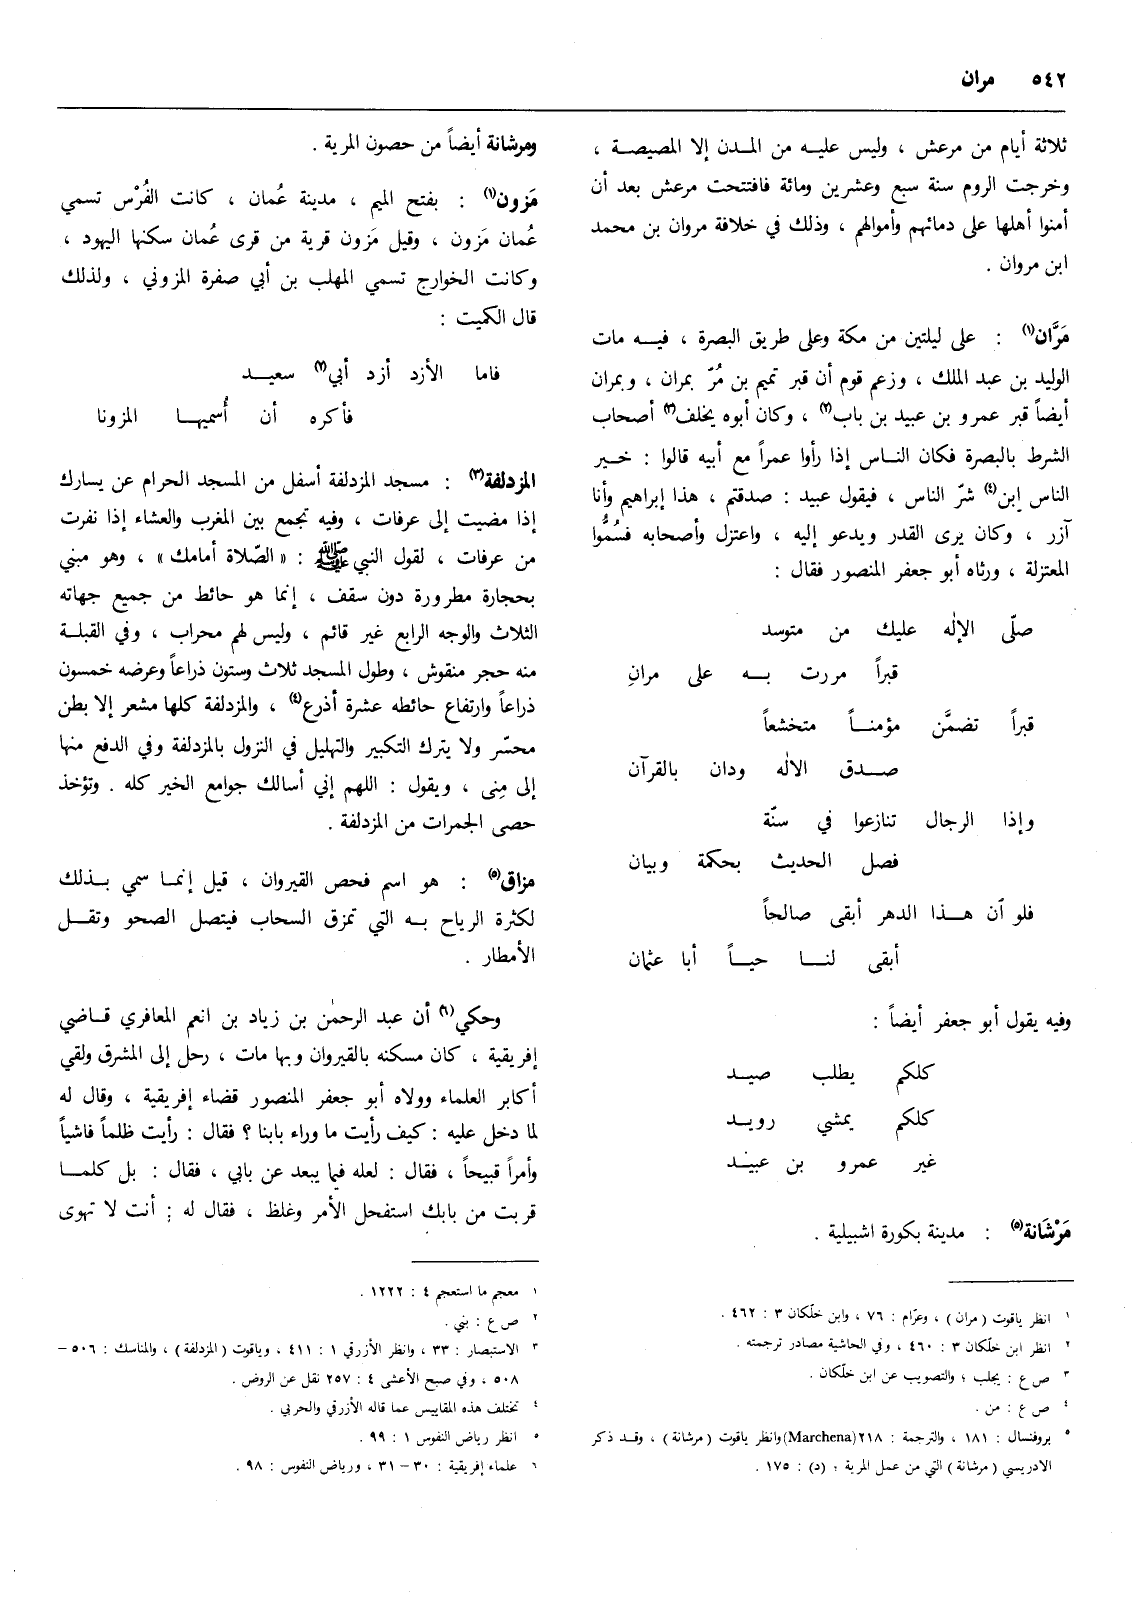 ٥٤٢ مران
ثلاثة أيام من مرعش ، وليس عليه من المدن إلا المصيصة ،
وخرجت الروم سنة سبع وعشرين ومائة فافتتحت مرعش بعد أن
أمنوا أهلها على دمائهم وأموالهم ، وذلك في خلافة مروان بن محمد
ابن مروان .
مَرَّان(١) : على ليلتين من مكة وعلى طريق البصرة ، فيه مات
الوليد بن عبد الملك ، وزعم قوم أن قبر تميم بن مُرّ بمران ، وبمران
أيضاً قبر عمرو بن عبيد بن باب(٢) ، وكان أبوه يخلف(٣) أصحاب
الشرط بالبصرة فكان الناس إذا رأوا عمراً مع أبيه قالوا : خير
الناس إبن(٤) شرّ الناس ، فيقول عبيد : صدقتم ، هذا إبراهيم وأنا
آزر ، وكان يرى القدر ويدعو إليه ، واعتزل وأصحابه فسُمُّوا
المعتزلة ، ورثاه أبو جعفر المنصور فقال :
صلّى الإلٰه عليك من متوسد
قبراً مررت به على مرانِ
قبراً تضمَّن مؤمناً متخشعاً
صدق الالٰه ودان بالقرآن
وإذا الرجال تنازعوا في سنّة
فصل الحديث بحكمة وبيان
فلو آن هذا الدهر أبقى صالحاً
أبقى لنا حياً أبا عثمان
وفيه يقول أبو جعفر أيضاً :
كلكم يطلب صيد
كلكم يمشي رويد
غير عمرو بن عبيْد
مَرْشَانة(٥) : مدينة بكورة اشبيلية .
١ انظر ياقوت ( مران ) ، وعرّام : ٧٦ ، وابن خلّكان ٣ : ٤٦٢ .
٢ انظر ابن خلّكان ٣ : ٤٦٠ ، وفي الحاشية مصادر ترجمته .
٣ ص ع : يجلب ؛ والتصويب عن ابن خلّكان .
٤ ص ع : من .
٥ بروفنسال : ١٨١ ، والترجمة : ٢١٨ (Marchena) وانظر ياقوت ( مرشانة ) ، وقد ذكر
الادريسي ( مرشانة ) التي من عمل المرية ؛ (د) : ١٧٥ .
ومرشانة أيضاً من حصون المرية .
مَزون(١) : بفتح الميم ، مدينة عُمان ، كانت الفُرْس تسمي
عُمان مَزون ، وقيل مَزون قرية من قرى عُمان سكنها اليهود ،
وكانت الخوارج تسمي المهلب بن أبي صفرة المزوني ، ولذلك
قال الكميت :
فاما الأزد أزد أبي(٢) سعيد
فأكره أن أُسميها المزونا
المزدلفة(٣) : مسجد المزدلفة أسفل من المسجد الحرام عن يسارك
إذا مضيت إلى عرفات ، وفيه تجمع بين المغرب والعشاء إذا نفرت
من عرفات ، لقول النبي ﷺ : « الصّلاة أمامك » ، وهو مبني
بحجارة مطرورة دون سقف ، إنما هو حائط من جميع جهاته
الثلاث والوجه الرابع غير قائم ، وليس لهم محراب ، وفي القبلة
منه حجر منقوش ، وطول المسجد ثلاث وستون ذراعاً وعرضه خمسون
ذراعاً وارتفاع حائطه عشرة أذرع(٤) ، والمزدلفة كلها مشعر إلا بطن
محسّر ولا يترك التكبير والتهليل في النزول بالمزدلفة وفي الدفع منها
إلى مِنى ، ويقول : اللهم إني أسالك جوامع الخير كله . وتؤخذ
حصى الجمرات من المزدلفة .
مزاق(٥) : هو اسم فحص القيروان ، قيل إنما سمي بذلك
لكثرة الرياح به التي تمزق السحاب فيتصل الصحو وتقل
الأمطار .
وحكي(٦) أن عبد الرحمٰن بن زياد بن انعم المعافري قاضي
إفريقية ، كان مسكنه بالقيروان وبها مات ، رحل إلى المشرق ولقي
أكابر العلماء وولاه أبو جعفر المنصور قضاء إفريقية ، وقال له
لما دخل عليه : كيف رأيت ما وراء بابنا ؟ فقال : رأيت ظلماً فاشياً
وأمراً قبيحاً ، فقال : لعله فيما يبعد عن بابي ، فقال : بل كلما
قربت من بابك استفحل الأمر وغلظ ، فقال له : أنت لا تهوى
١ معجم ما استعجم ٤ : ١٢٢٢ .
٢ ص ع : بني .
٣ الاستبصار : ٣٣ ، وانظر الأزرقي ١ : ٤١١ ، وياقوت ( المزدلفة ) ، والمناسك : ٥٠٦ –
٥٠٨ ، وفي صبح الأعشى ٤ : ٢٥٧ نقل عن الروض .
٤ تختلف هذه المقاييس عما قاله الأزرقي والحربي .
٥ انظر رياض النفوس ١ : ٩٩ .
٦ علماء إفريقية : ٣٠ – ٣١ ، ورياض النفوس : ٩٨ .